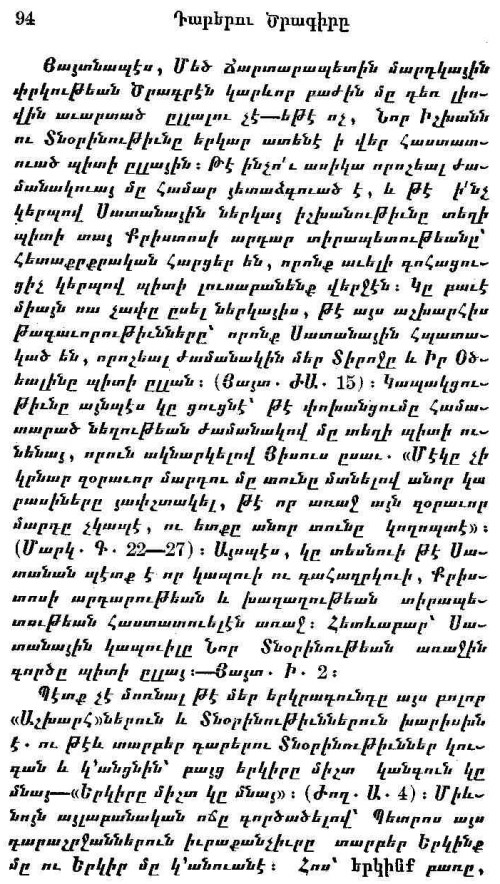 94 Դարերու Ծրագիրը
Յայտնապէս, Մեծ Ճարտարապետին մարդկային
փրկութեան Ծրագրէն կարևոր բաժին մը դեռ լիո-
վին աւարտած ըլլալու չէ—եթէ ոչ, Նոր Իշխանն
ու Տնօրինութիւնը երկար ատենէ ի վեր հաստատ-
ուած պիտի ըլլային։ Թէ ինչո՛ւ ասիկա որոշեալ ժա-
մանակուայ մը համար յետաձգուած է, և թէ ի՛նչ
կերպով Սատանային ներկայ իշխանութիւնը տեղի
պիտի տայ Քրիստոսի արդար տիրապետութեանը՝
հետաքրքրական հարցեր են, որոնք աւելի գոհացու-
ցիչ կերպով պիտի լուսաբանենք վերջէն։ Կը բաւէ
միայն սա չափը ըսել ներկայիս, թէ այս աշխարհիս
թագաւորութիւնները՝ որոնք Սատանային հպատա-
կած են, որոշեալ ժամանակին մեր Տիրոջը և Իր Օծ-
եալինը պիտի ըլլան։ (Յայտ. ԺԱ. 15)։ Կապակցու-
թիւնը այնպէս կը ցուցնէ՝ թէ փոխանցումը համա-
տարած նեղութեան ժամանակով մը տեղի պիտի ու-
նենայ, որուն ակնարկելով Յիսուս ըսաւ. «Մէկը չի
կրնար զօրաւոր մարդու մը տունը մտնելով անոր կա
րասիները յափշտակել, թէ որ առաջ այն զօրաւոր
մարդը չկապէ, ու ետքը անոր տունը կողոպտէ»։
(Մարկ. Գ. 22—27)։ Այսպէս, կը տեսնուի թէ Սա-
տանան պէտք է որ կապուի ու գահազրկուի, Քրիս-
տոսի արդարութեան և խաղաղութեան տիրապե-
տութեան հաստատուելէն առաջ։ Հետևաբար՝ Սա-
տանային կապուիլը Նոր Տնօրինութեան առաջին
գործը պիտի ըլլայ։—Յայտ. Ի. 2։
Պէտք չէ մոռնալ թէ մեր երկրագունդը այս բոլոր
«Աշխարհ»ներուն և Տնօրինութիւններուն խարիսխն
է. ու թէև տարբեր դարերու Տնօրինութիւններ կու-
գան և կ՚անցնին՝ բայց երկիրը միշտ կանգուն կը
մնայ—«Երկիրը միշտ կը մնայ»։ (Ժող. Ա. 4)։ Միև-
նոյն այլաբանական ոճը գործածելով՝ Պետրոս այս
դարաշրջաններուն իւրաքանչիւրը տարբեր Երկինք
մը ու Երկիր մը կ՚անուանէ։ Հոս՝ երկինք բառը,